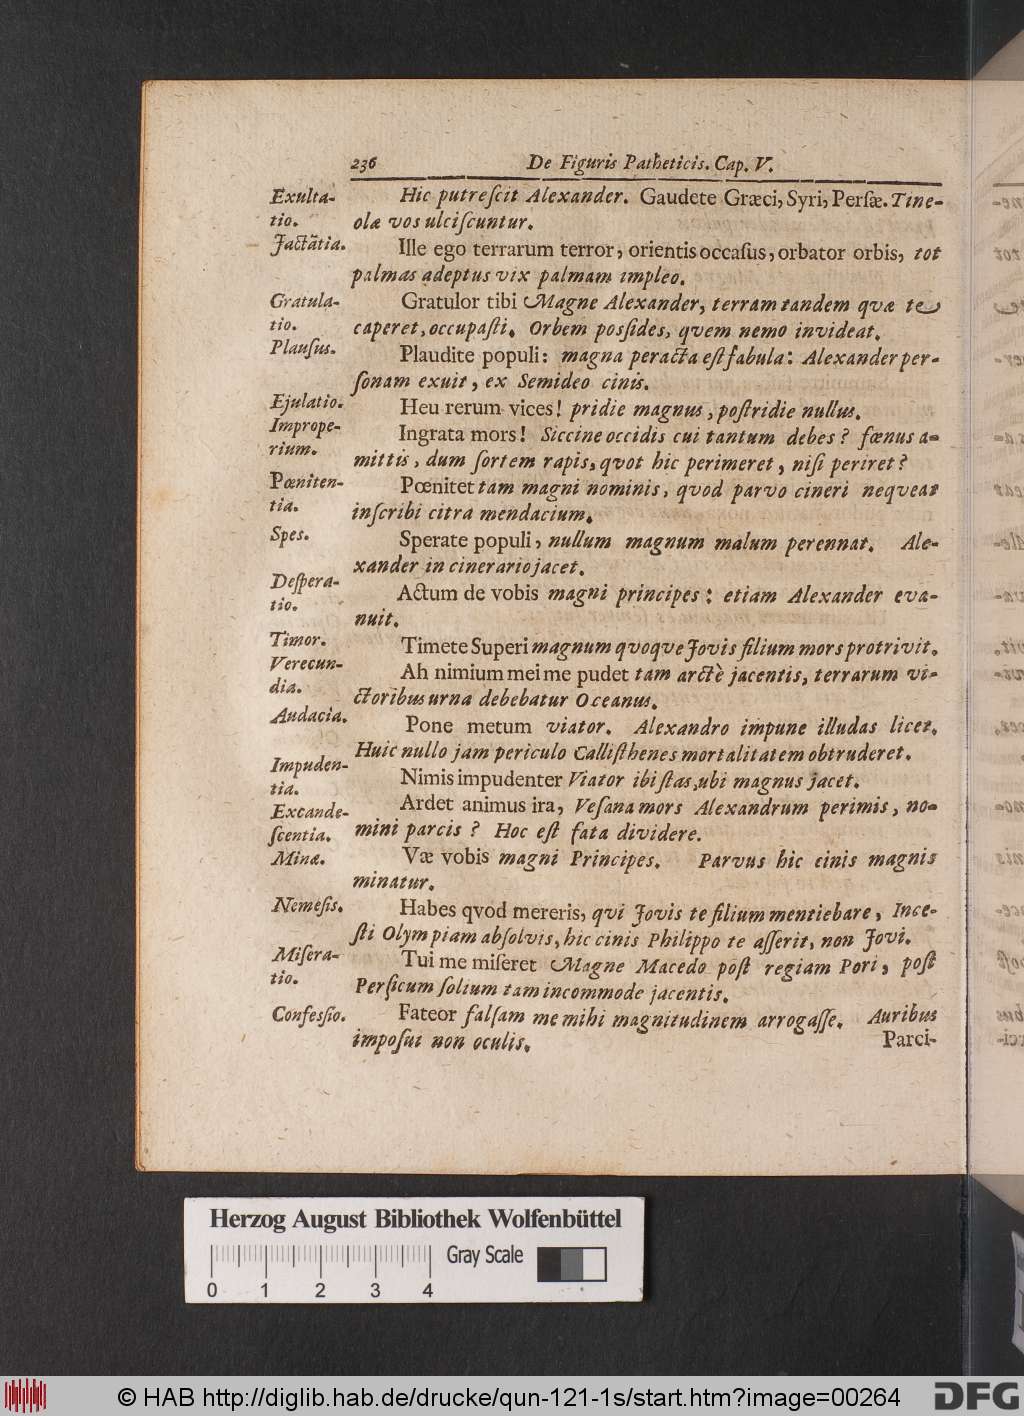 236 De Figuris Patheticis. Cap. V.
Exulta-
tio.
Hic putreſcit Alexander. Gaudete Græci, Syri, Perſæ. Tine-
olæ vos ulciſcuntur.
Jactātia.
Ille ego terrarum terror, orientis occaſus, orbator orbis, tot
palmas adeptus vix palmam impleo.
Gratula-
tio.
Gratulor tibi Magne Alexander, terram tandem quæ te
caperet, occupaſti. Orbem posſides, quem nemo invideat.
Plauſus.
Plaudite populi: magna peracta eſt fabula: Alexander per-
ſonam exuit, ex Semideo cinis.
Ejulatio.
Heu rerum vices! pridie magnus, poſtridie nullus.
Imprope-
rium.
Ingrata mors! Siccine occidis cui tantum debes? fœnus a-
mittis, dum ſortem rapis, quot hic perimeret, niſi periret?
Pœniten-
tia.
Pœnitet tam magni nominis, quod parvo cineri nequeat
inſcribi citra mendacium.
Spes.
Sperate populi, nullum magnum malum perennat. Ale-
xander in cinerario jacet.
Deſpera-
tio.
Actum de vobis magni principes: etiam Alexander eva-
nuit.
Timor.
Timete Superi magnum quoque Jovis filium mors protrivit.
Verecun-
dia.
Ah nimium mei me pudet tam arctè jacentis, terrarum vi-
ctoribus urna debebatur Oceanus.
Audacia.
Pone metum viator. Alexandro impune illudas licet.
Huic nullo jam periculo Calliſthenes mortalitatem obtruderet.
Impuden-
tia.
Nimis impudenter Viator ibi ſtas, ubi magnus jacet.
Excande-
ſcentia.
Ardet animus ira, Veſana mors Alexandrum perimis, no-
mini parcis? Hoc eſt fata dividere.
Minæ.
Væ vobis magni Principes. Parvus hic cinis magnis
minatur.
Nemeſis.
Habes qvod mereris, qui Jovis te filium mentiebare, Ince-
ſti Olympiam abſolvis, hic cinis Philippo te aſſerit, non Jovi.
Miſera-
tio.
Tui me miſeret Magne Macedo pōſt regiam Pori, poſt
Perſicum ſolium tam incommode jacentis.
Confesſio.
Fateor falſam me mihi magnitudinem arrogaſſe. Auribus
impoſui non oculis.
Parci-
Herzog August Bibliothek Wolfenbüttel
Gray Scale
0 1 2 3 4
© HAB http://diglib.hab.de/drucke/qun-121-1s/start.htm?image=00264
DFG